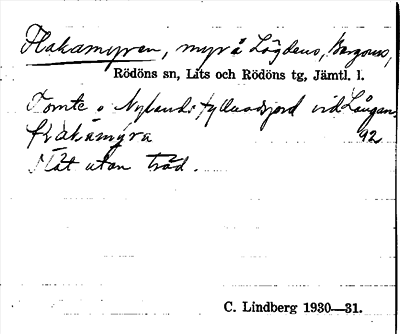 Flakamyren, myr å Lögdens, Bergoms,
Rödöns sn, Lits och Rödöns tg, Jämtl. l.
Tomte o Nylands fyllnadsjord vid Långan.
flakamýra 92
Flåt utan träd.
C. Lindberg 1930—31.